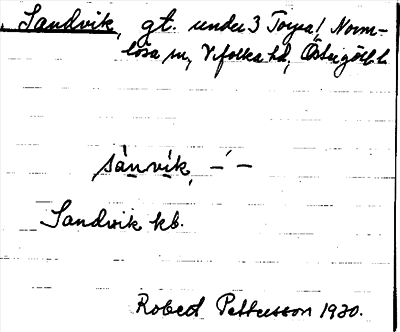 Sandvik, gt. under 3 Torpa! Norm-
lösa sn, Vifolka hd, Östergötl. l.
sànvík, –́ –
Sandvik kb.
Robert Pettersson 1930.